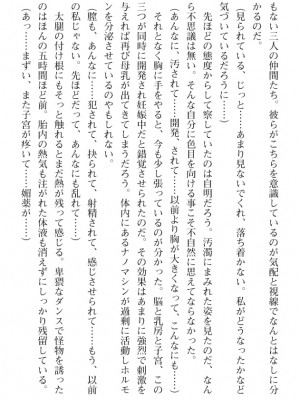 もない三人の仲間たち。彼らがこちらを意識しているのが気配と視線でなんとはなしに分
かるのだ。
（見られている、じっと……あまり見ないでくれ、落ち着かない。私がどうなったかなど
気づいているだろうに……）
　先ほどの態度からして察していたのは自明だろう。汚濁にまみれた姿を見たのだ、なん
ら不思議は無い。そんな自分に色目を向ける事こそ不自然に思えてならなかった。
（あんなに、汚されて……開発、されて……以前より胸が大きくなって、こんなにも……）
　そっと胸に手をやると、今も少し張っているのが分かった。脳と乳房と子宮、この
三つが同時に開発され妊娠中だと錯覚させられたのだ。その効果はあまりに強烈で刺激を
与えれば再び母乳が出てきてしまうだろう。体内にあるナノマシンが過剰に活動しホルモ
ンを分泌させているのやもしれない。
（膣も、あんなに……犯されて、抉られて、射精されて、感じさせられて……もう、以前
の私じゃない。先ほどだって、あんなにも乱れて……）
　太腿の付け根にもそっと触れるとまだ熱が残って感じる。卑猥なダンスで怪物を誘った
のはほんの五時間ほど前、胎内の熱気も注がれた体液も消えずにしっかり残留している。
（あっ……まずい、また子宮が疼いて……媚薬が……）